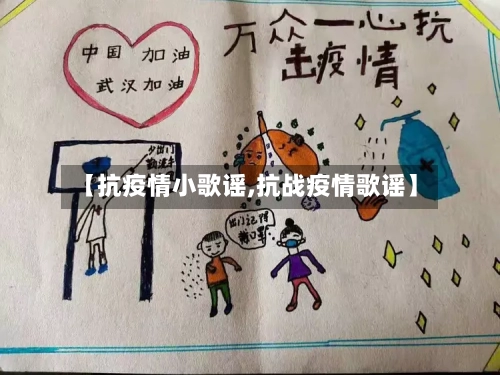 中国 加油
武汉加油
万众一心抗
击疫情
少出门
勤洗手
【抗疫情小歌谣,抗战疫情歌谣】
出门记得
戴口罩